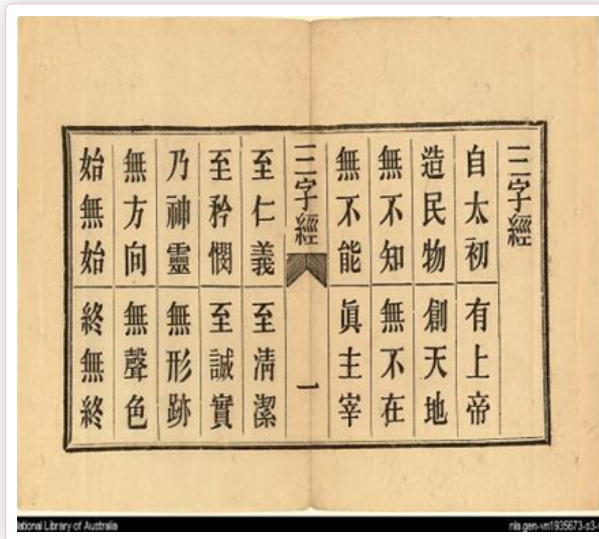 三字經
自太初 有上帝
造民物 創天地
無不知 無不在
無不能 眞主宰
三字經 一
至仁義 至清潔
至矜憫 至誠實
乃神靈 無形跡
無方向 無聲色
始無始 終無終
ational Library of Australia
nla.gen-vn1935673-s3-